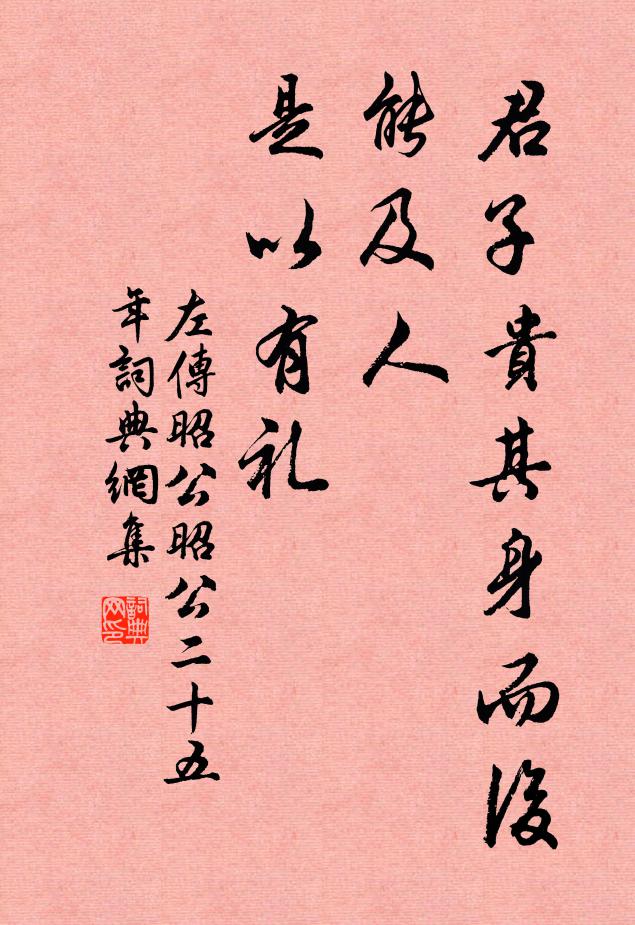 君子貴其身而後
能及人
是以有礼
左傳昭公昭公二十五
年詞典網集
詞典网印